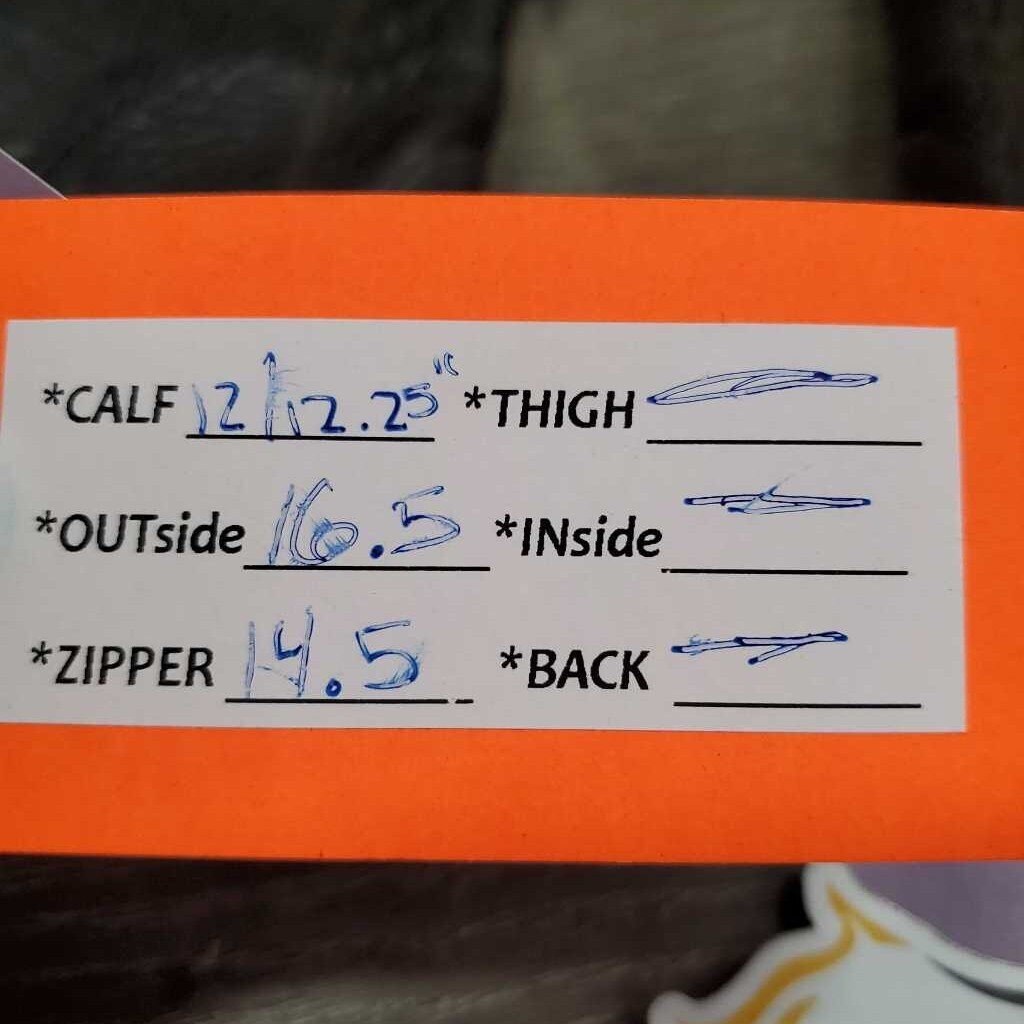 *CALF 12 | 12.25" *THIGH
*OUTside 16.5 *INside
*ZIPPER 14.5 *BACK